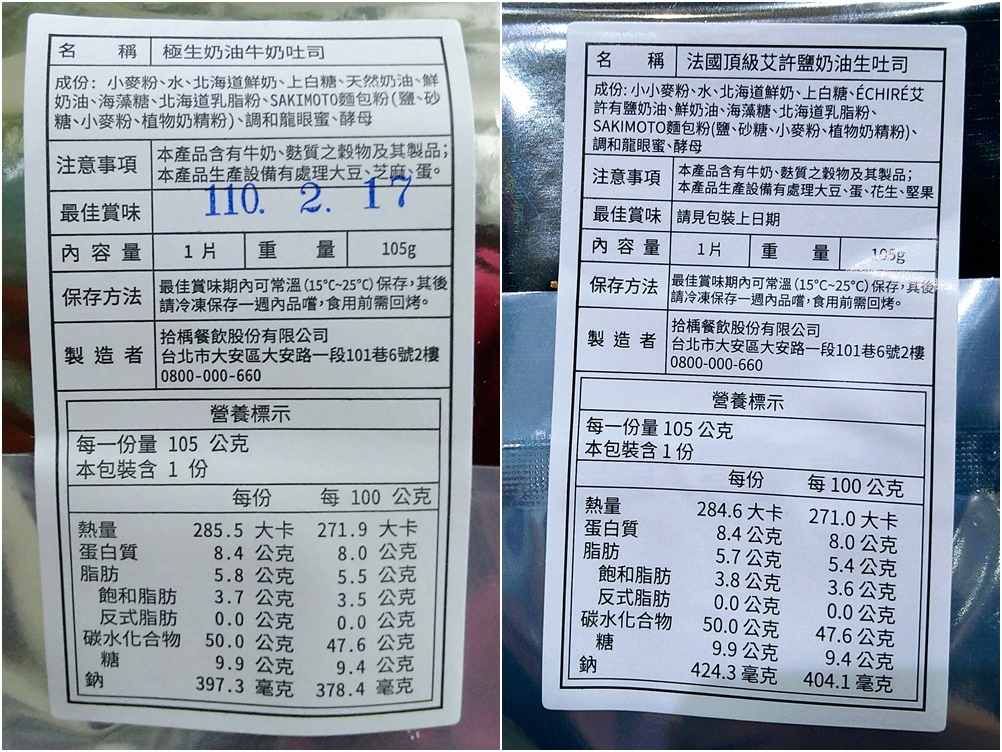 名 稱 極生奶油牛奶吐司
成份: 小麥粉、水、北海道鮮奶、上白糖、天然奶油、鮮
奶油、海藻糖、北海道乳脂粉、SAKIMOTO麵包粉(鹽、砂
糖、小麥粉、植物奶精粉)、調和龍眼蜜、酵母
注意事項 本產品含有牛奶、麩質之穀物及其製品;
本產品生產設備有處理大豆、芝麻、蛋。
最佳賞味 110. 2. 17
內容量 1片 重 量 105g
保存方法 最佳賞味期內可常溫(15°C~25°C)保存,其後
請冷凍保存一週內品嚐,食用前需回烤。
製造者 拾楀餐飲股份有限公司
台北市大安區大安路一段101巷6號2樓
0800-000-660
營養標示
每一份量 105 公克
本包裝含 1 份
每份 每 100 公克
熱量 285.5 大卡 271.9 大卡
蛋白質 8.4 公克 8.0 公克
脂肪 5.8 公克 5.5 公克
飽和脂肪 3.7 公克 3.5 公克
反式脂肪 0.0 公克 0.0 公克
碳水化合物 50.0 公克 47.6 公克
糖 9.9 公克 9.4 公克
鈉 397.3 毫克 378.4 毫克
名 稱 法國頂級艾許鹽奶油生吐司
成份: 小小麥粉、水、北海道鮮奶、上白糖、ÉCHIRÉ艾
許有鹽奶油、鮮奶油、海藻糖、北海道乳脂粉、
SAKIMOTO麵包粉(鹽、砂糖、小麥粉、植物奶精粉)、
調和龍眼蜜、酵母
注意事項 本產品含有牛奶、麩質之穀物及其製品;
本產品生產設備有處理大豆、蛋、花生、堅果
最佳賞味 請見包裝上日期
內容量 1片 重 量 105g
保存方法 最佳賞味期內可常溫(15°C~25°C)保存,其後
請冷凍保存一週內品嚐,食用前需回烤。
製造者 拾楀餐飲股份有限公司
台北市大安區大安路一段101巷6號2樓
0800-000-660
營養標示
每一份量 105 公克
本包裝含 1 份
每份 每 100 公克
熱量 284.6 大卡 271.0 大卡
蛋白質 8.4 公克 8.0 公克
脂肪 5.7 公克 5.4 公克
飽和脂肪 3.8 公克 3.6 公克
反式脂肪 0.0 公克 0.0 公克
碳水化合物 50.0 公克 47.6 公克
糖 9.9 公克 9.4 公克
鈉 424.3 毫克 404.1 毫克